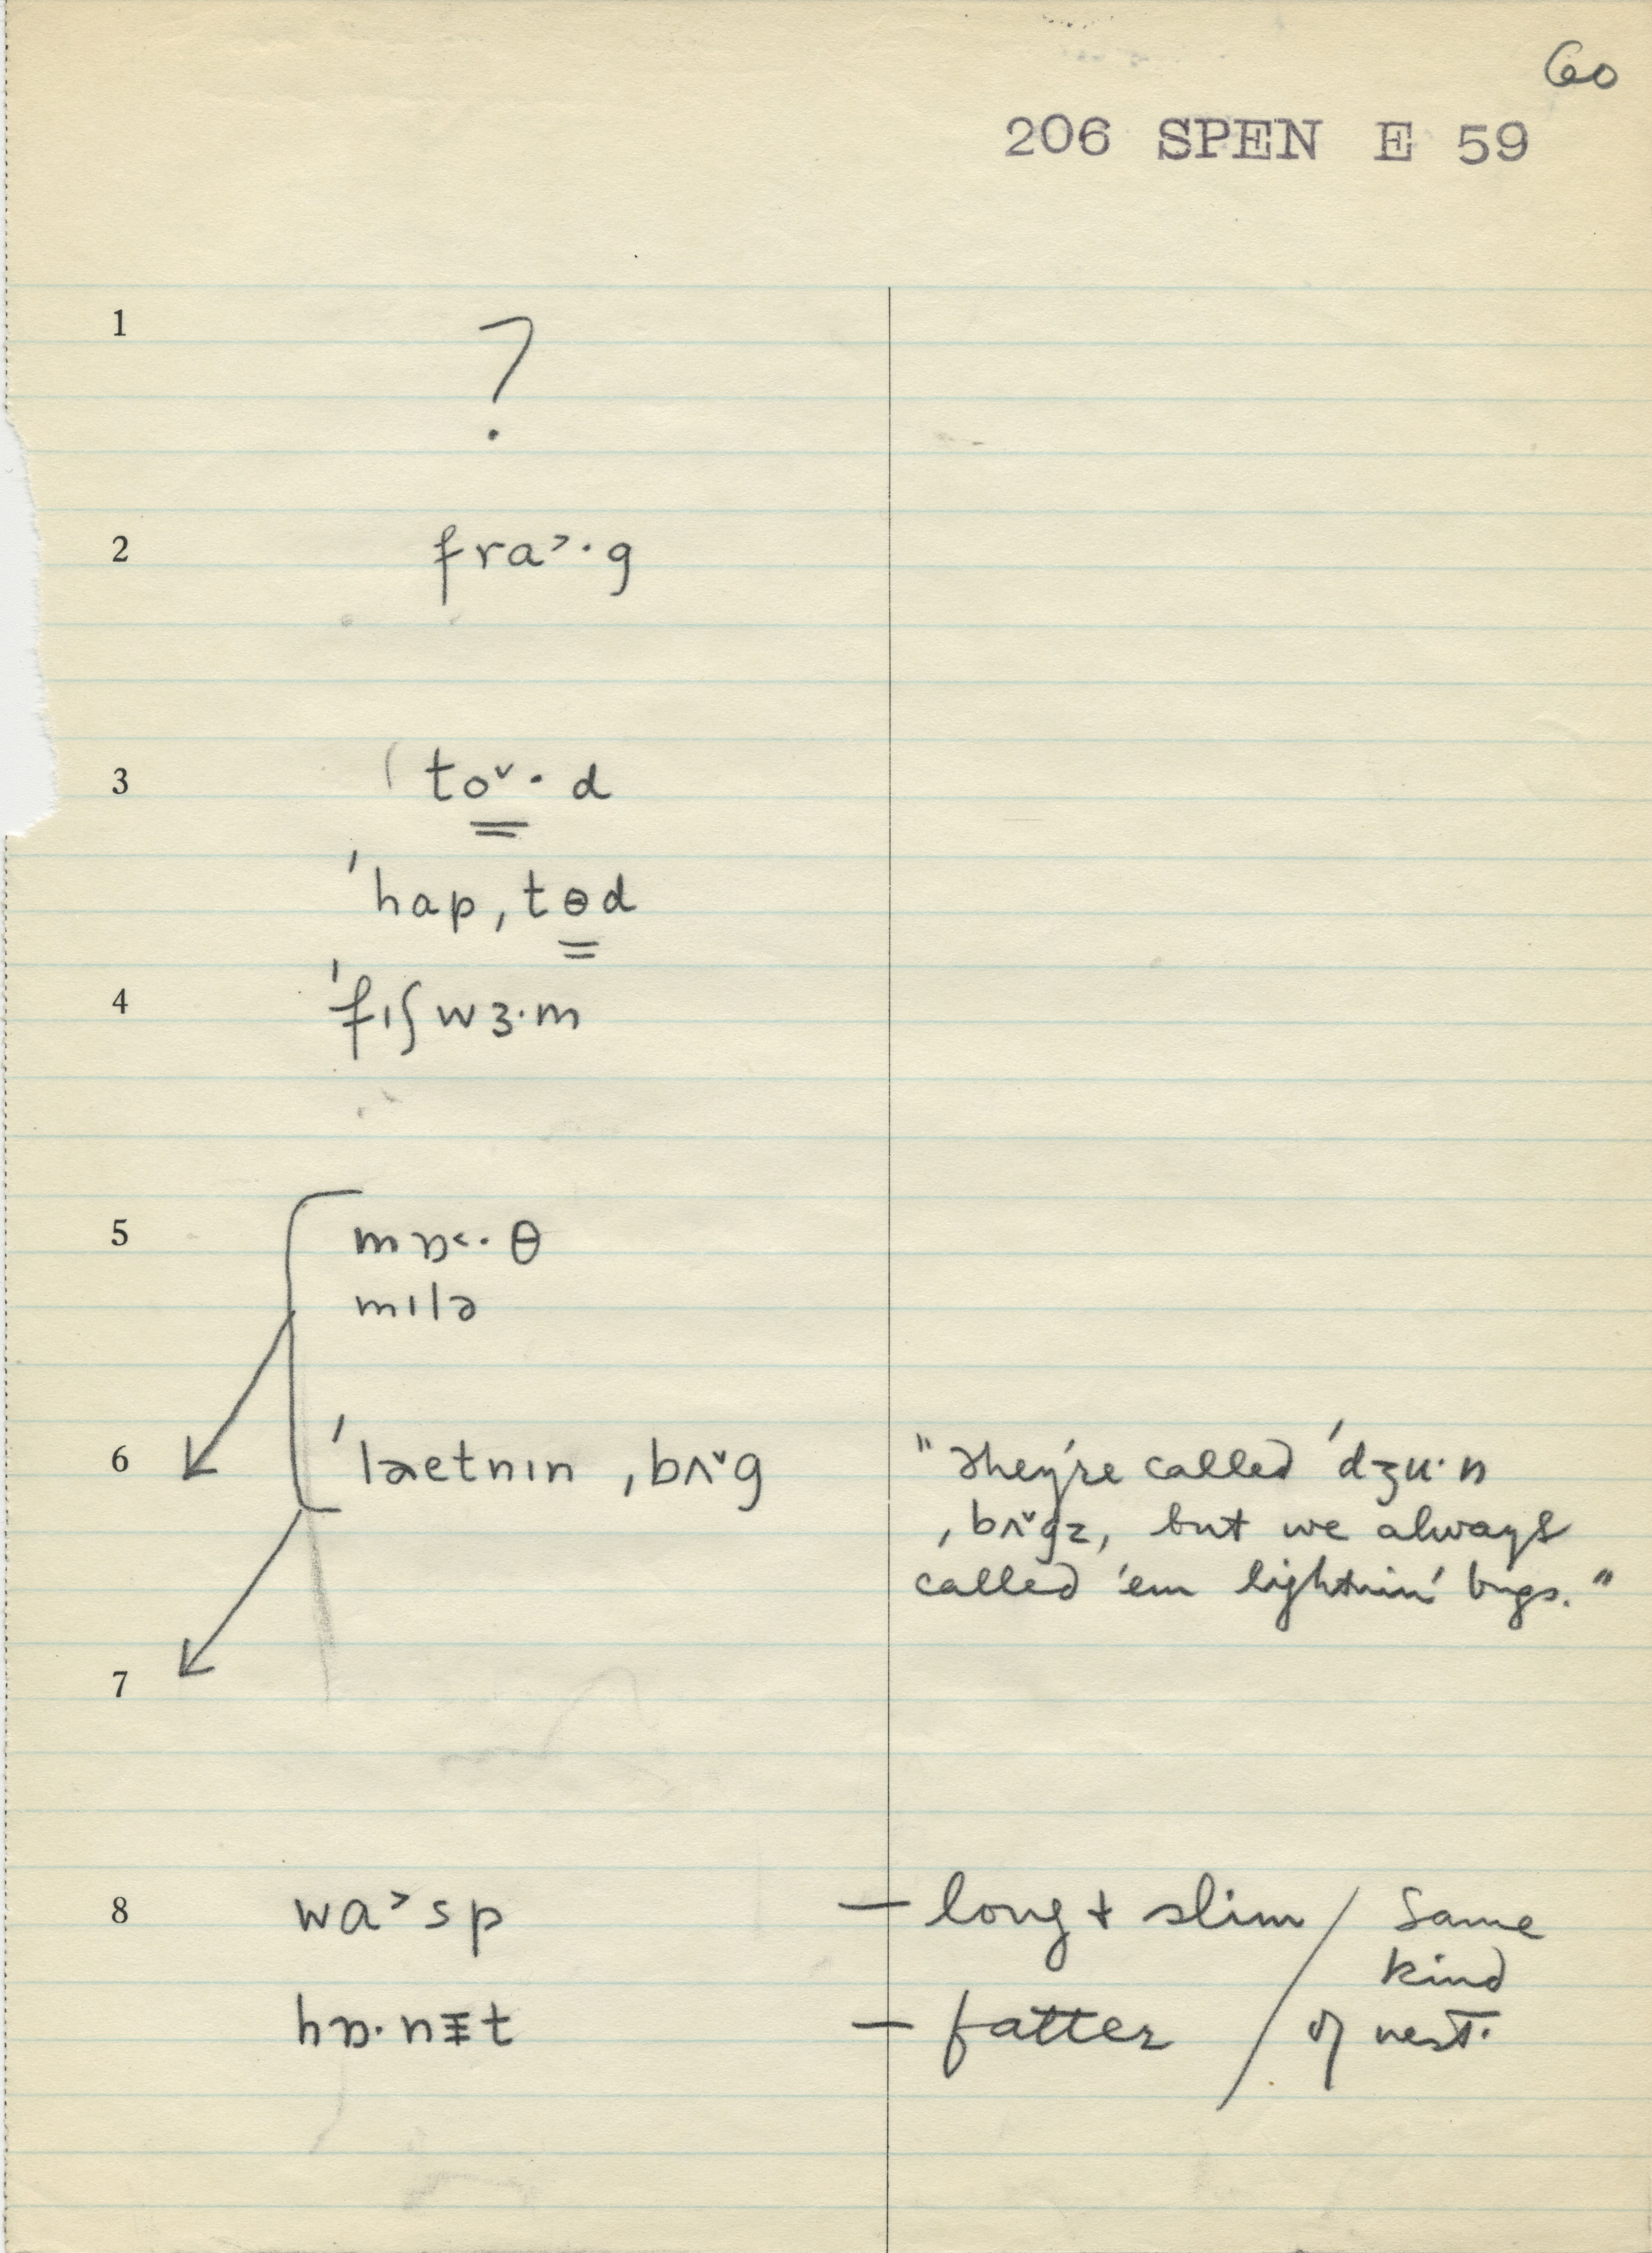 60
206 SPEN E 59
1 ?
2 fra˃·g
3 (to˅·d
'hap,tɵd
4 'fɪʃwɜ·m
5 mɒ˂·θ
mɪlə
6 'laetnɪn ,bʌ˅g "They're called 'dʒu·n
,bʌ˅gz, but we always
called 'em lightnin' bugs."
7
8 wa˃sp — long + slim / Same
kind
hɒ·nɪ̵t — fatter / of nest.